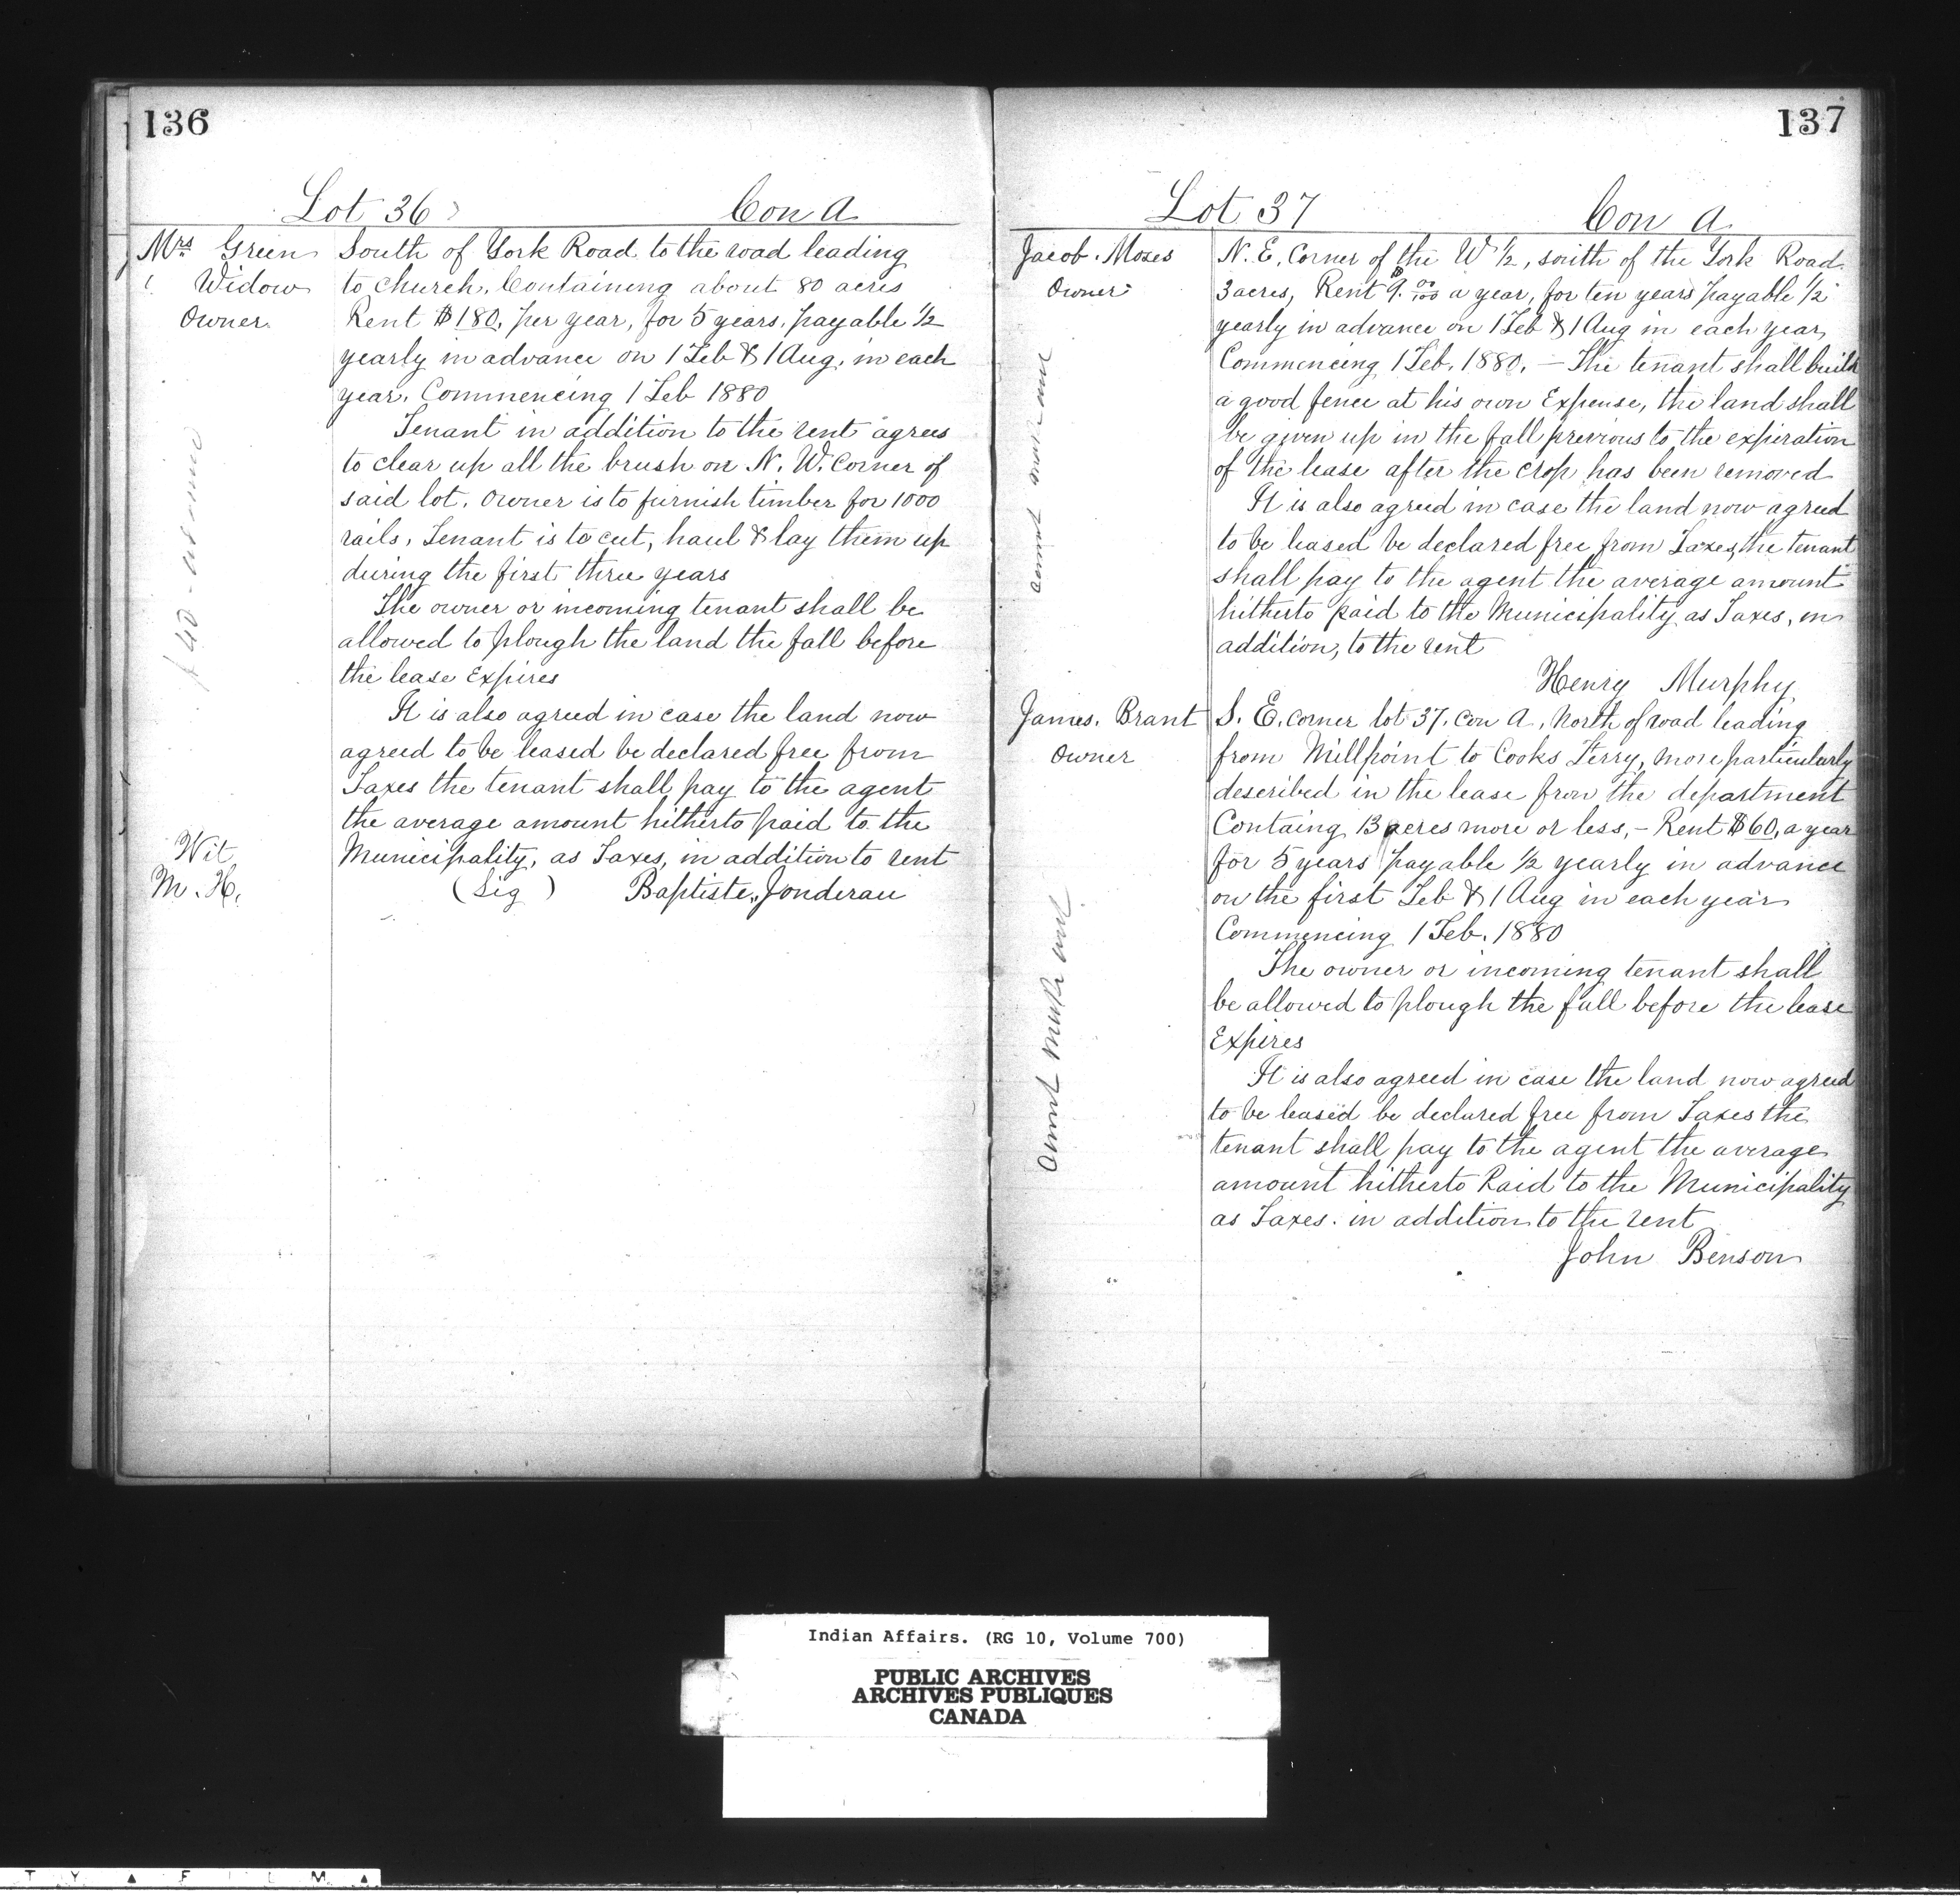 136
Lot 36 Con A
Mrs Green
Widow
Owner
South of York Road to the road leading
to church. Containing about 80 acres
Rent $180. per year, for 5 years, payable ½
yearly in advance on 1 Feb & 1 Aug. in each
year. Commencing 1 Feb 1880
Tenant in addition to the rent agrees
to clear up all the brush on N. W. Corner of
said lot. Owner is to furnish timber for 1000
rails. Tenant is to cut, haul & lay them up
during the first three years
The owner or incoming tenant shall be
allowed to plough the land the fall before
the lease Expires
It is also agreed in case the land now
agreed to be leased be declared free from
Taxes the tenant shall pay to the agent
the average amount hitherto paid to the
Municipality, as Taxes, in addition to rent
Wit
M. H.
(Sig) Baptiste Jonderau
137
Lot 37 Con A
Jacob. Moses
Owner
N. E. Corner of the W ½, south of the York Road
3 acres, Rent $9. 00/100 a year, for ten years payable ½
yearly in advance on 1 Feb & 1 Aug in each year
Commencing 1 Feb. 1880. — The tenant shall build
a good fence at his own Expense, the land shall
be given up in the fall previous to the expiration
of the lease after the crop has been removed
It is also agreed in case the land now agreed
to be leased be declared free from Taxes, the tenant
shall pay to the agent the average amount
hitherto paid to the Municipality as Taxes, in
addition, to the rent
Henry Murphy
James. Brant
Owner
S. E. corner lot 37. Con A, North of road leading
from Millpoint to Cooks Ferry, more particularly
described in the lease from the department
Containg 13 acres more or less, - Rent $60, a year
for 5 years payable ½ yearly in advance
on the first Feb & 1 Aug in each year
Commencing 1 Feb. 1880
The owner or incoming tenant shall
be allowed to plough the fall before the lease
Expires
It is also agreed in case the land now agreed
to be leased be declared free from Taxes the
tenant shall pay to the agent the average
amount hitherto Paid to the Municipality
as Taxes. in addition to the rent
John Benson
Indian Affairs. (RG 10, Volume 700)
PUBLIC ARCHIVES
ARCHIVES PUBLIQUES
CANADA
T Y ▲ F I L M ▲